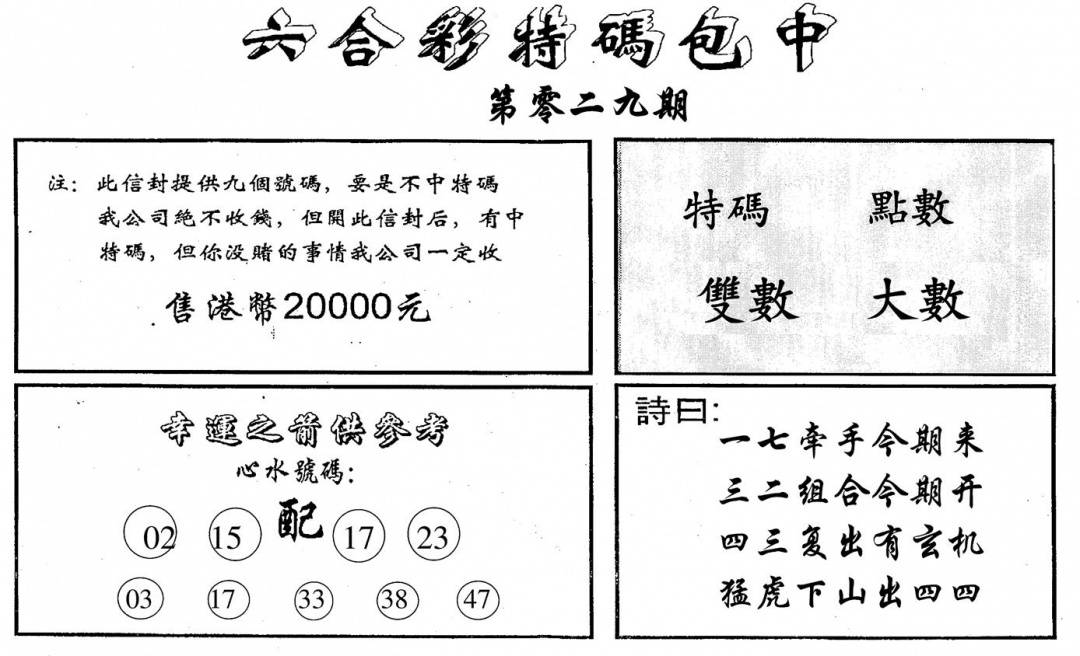 六合彩特碼包中
第零二九期
注：此信封提供九個號碼，要是不中特碼
我公司絕不收錢，但開此信封后，有中
特碼，但你没賭的事情我公司一定收
售港幣20000元
特碼 點數
雙數 大數
幸運之箭供參考
心水號碼：
02 15 配 17 23
03 17 33 38 47
詩曰：
一七牽手今期来
三二组合今期开
四三复出有玄机
猛虎下山出四四